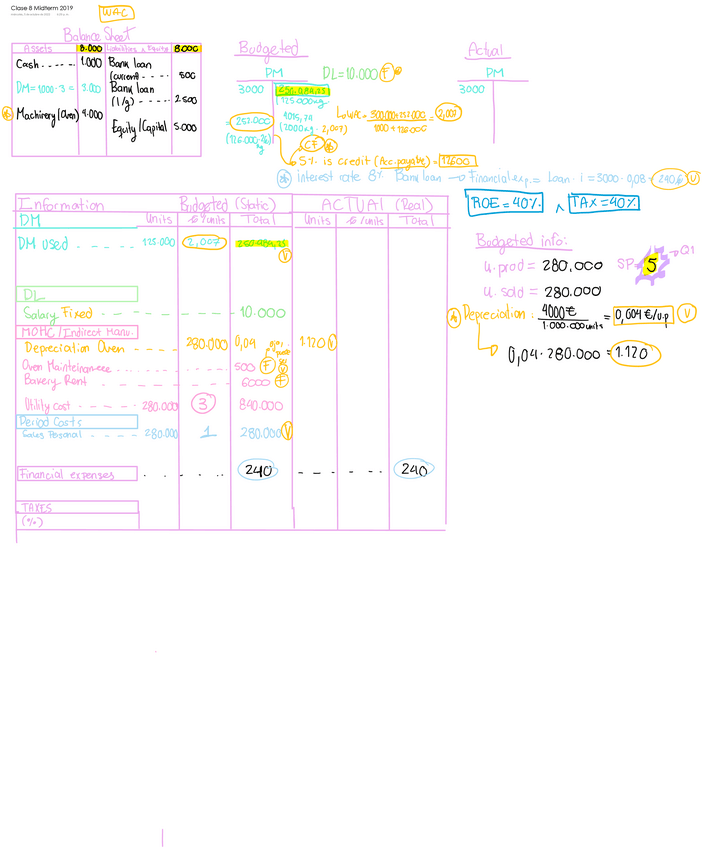 Clase 8 Midterm 2019
WAC
Balance Sheet
Assets 8.000 Liabilities & Equity 8.000
Cash ----- 1.000 Bank loan
(current ---- 500
DM = 1000·3 = 3.000 Bank loan
(l/g) ----- 2.500
Machinery (Oven) 4.000
Equity/Capital 5.000
Budgeted
DM
DL = 10.000 F
3000
(125.000 kg
= 252.000
(126.000·2€)
kg
(2000kg · 2,007)
CF
2,007
5% is credit (Acc. payable) = 12600
interest rate 8% Bank loan → Financial exp. = Loan · i = 3000 · 0,08 = 240€ V
Actual
DM
3000
ROE = 40% ^ TAX = 40%
Information Budgeted (Static) ACTUAL (Real)
DM Units €/units Total Units €/units Total
DM used ----- 125.000 2,007
V
DL
Salary Fixed ------- 10.000
MOHC/Indirect Manu.
Depreciation Oven ---- 280.000 0,04 1.120 V
Oven Maintenance ----- 500 F
Bakery Rent ------ 6000 F
Utility cost ---- 280.000 3 840.000
Period Costs
Sales Personal ---- 280.000 1 280.000 V
Financial expenses - - - - 240 - - - - - 240
TAXES
(%)
Budgeted info:
u. prod = 280.000 SP = 5 → Q1
u. sold = 280.000
Depreciation: 4000€ = 0,004 €/u.p V
1.000.000 units
0,04 · 280.000 = 1.120